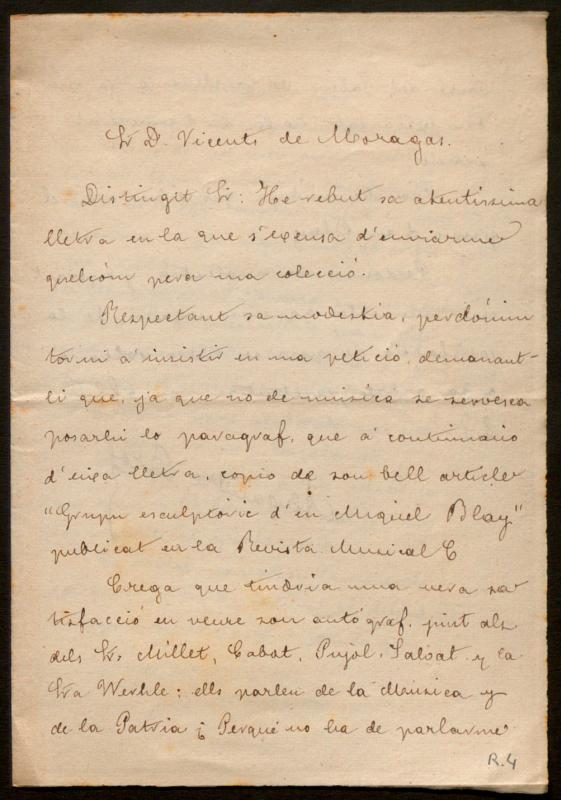 Sr D. Vicents de Moragas.
Distingit Sr: He rebut sa atentissima
lletra en la que s'excusa d'enviarme
quelcòm pera ma colecció.
Respectant sa modestia, perdónim
torni á insistir en ma petició, demanant-
li que, ja que no de música se servesca
posarhi lo paragraf, que á continuació
d'eixa lletra, copio de son bell article
"Grupu esculptóric d'en Miquel Blay"
publicat en la Revista Musical C
Crega que tindria una vera sa
tisfacció en veure son autógraf, junt als
dels Srs Millet, Cabot, Pujol, Salvat y la
Sra Werhle; ells parlen de la Música y
de la Patria ¿ Perqué no ha de parlarme
R.4